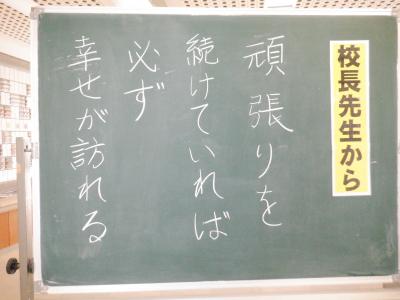 校長先生から
頑張りを
続けていれば
必ず
幸せが訪れる